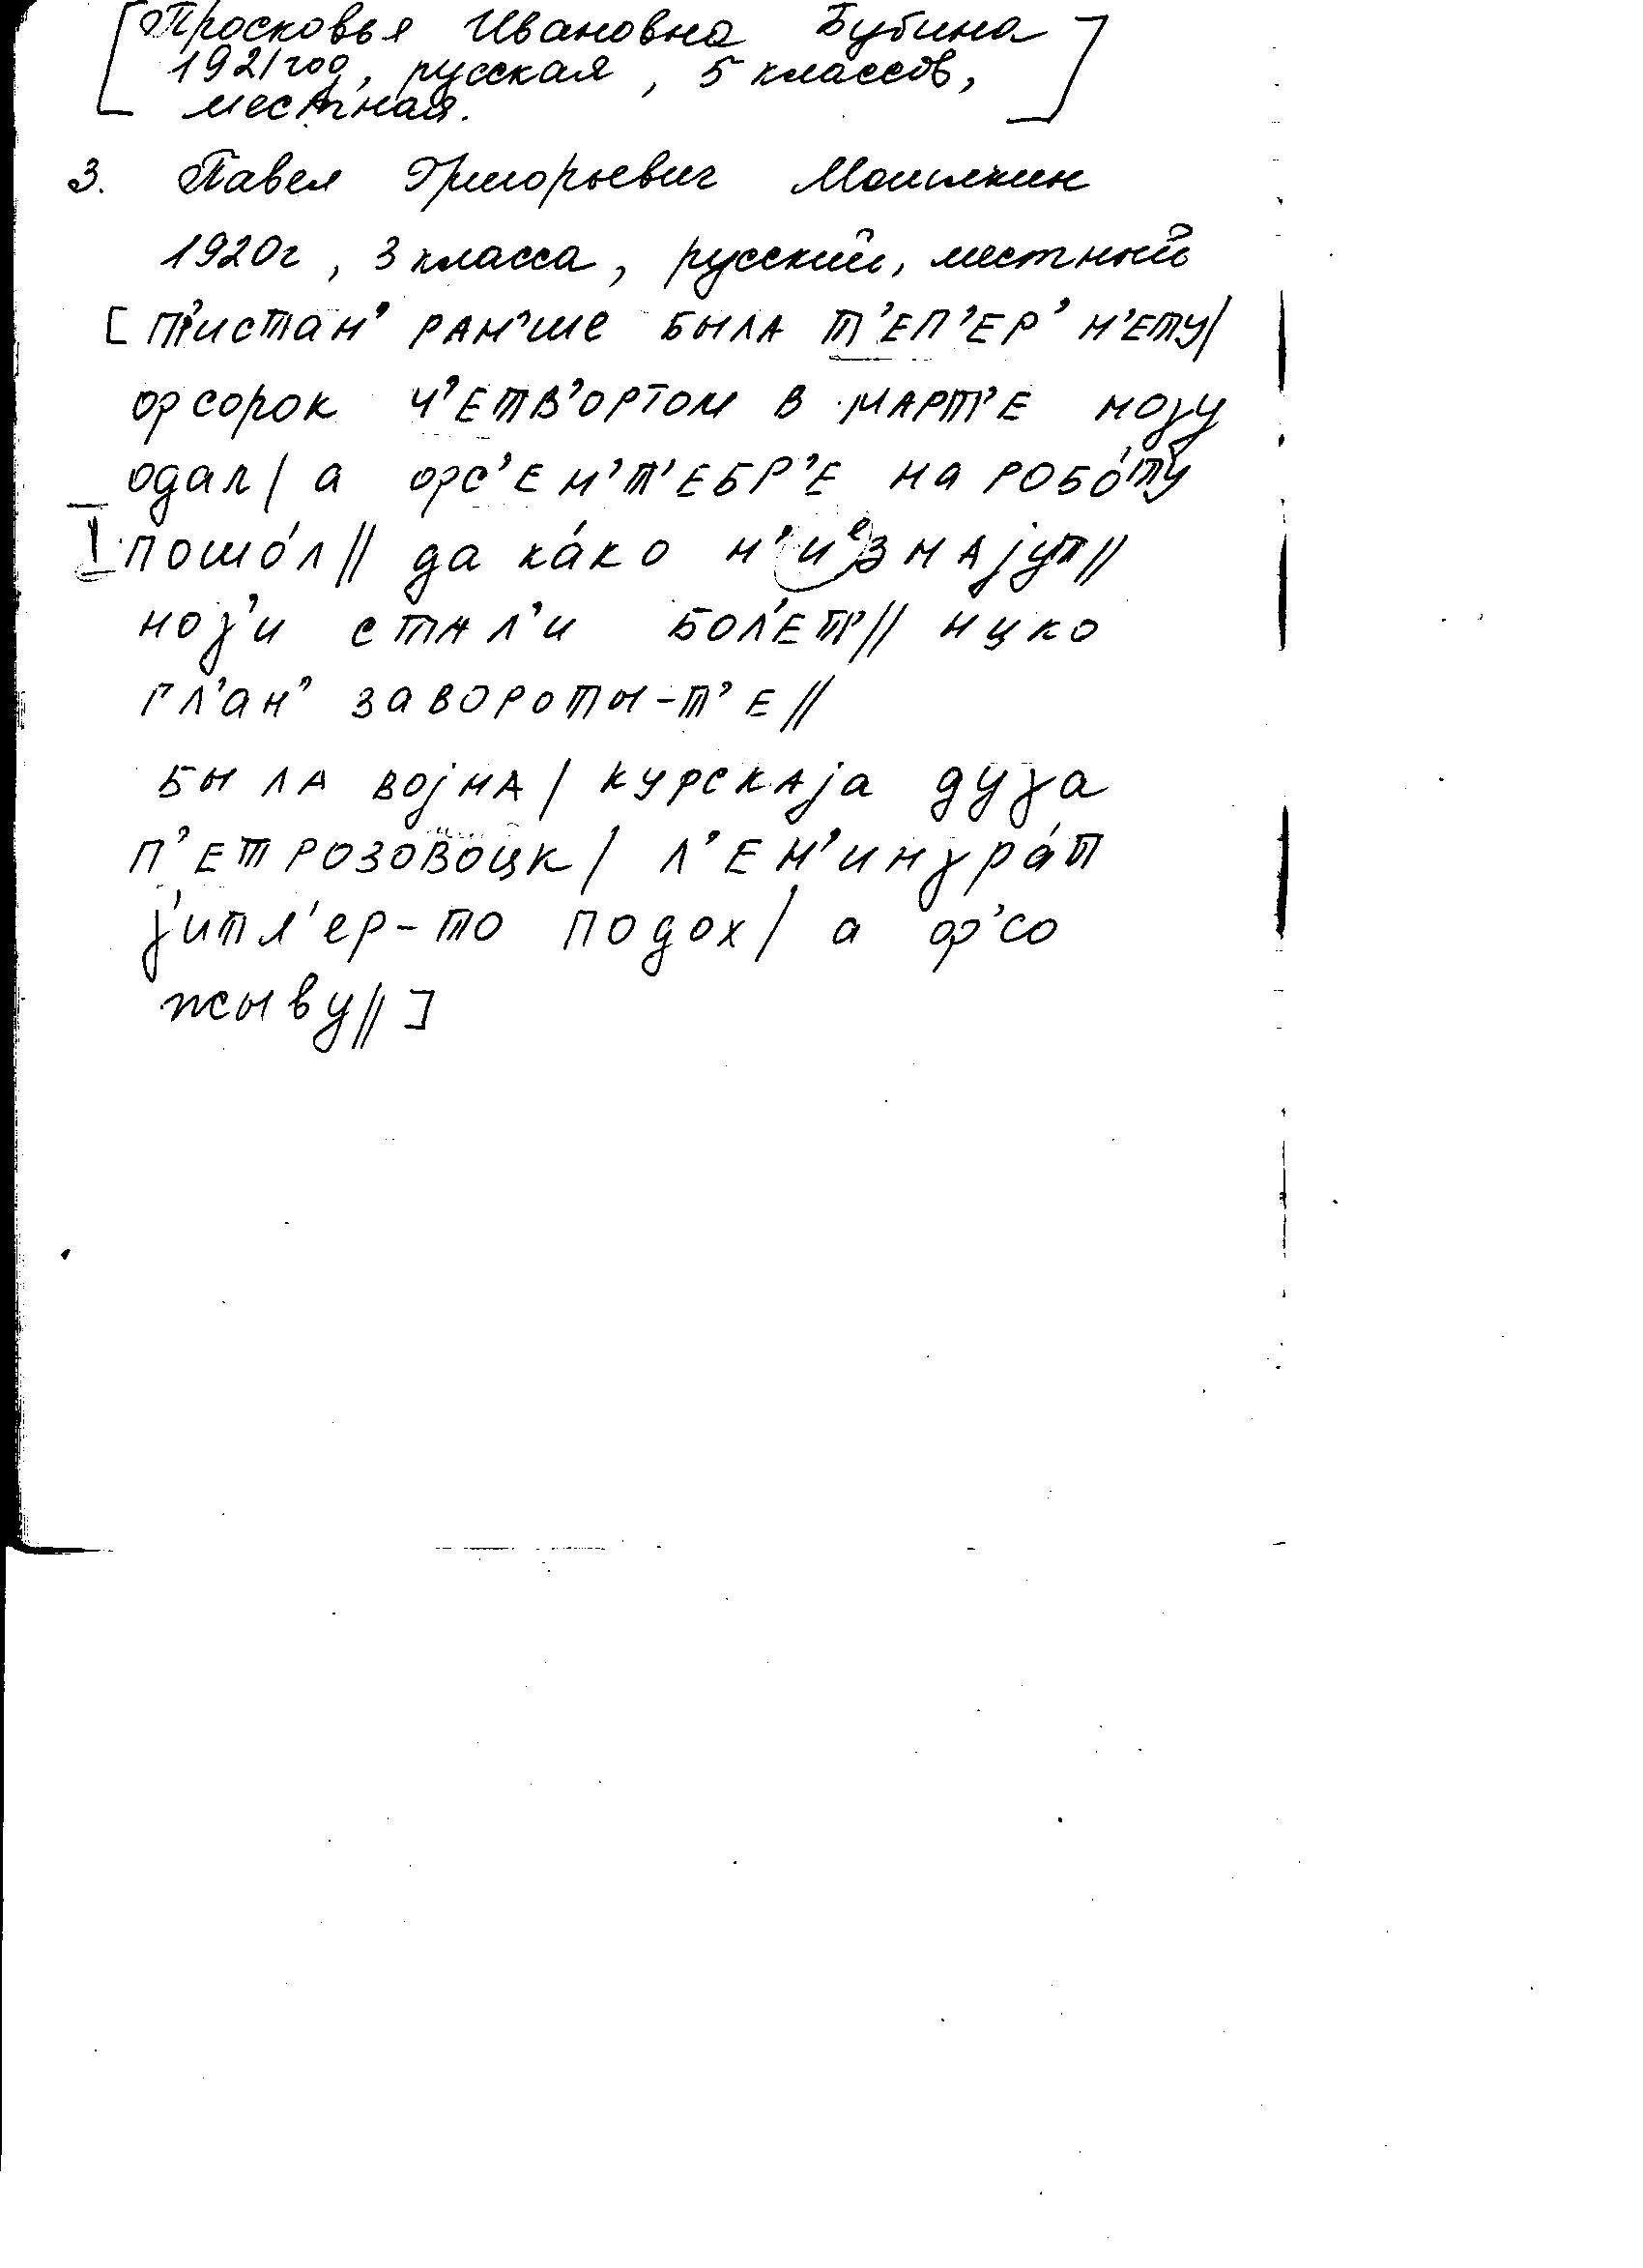 [Просковья Ивановна Бубина
1921 год, русская, 5 классов,
местная.]
3. Павел Григорьевич
1920г, 3 класса, русский, местный
[п'истан' ран'ше была т'еп'ер' н'ету/
фсорок ч'етв'ортом в март'е ноγу
одал/ а фс'ен'т'ебр'е на робо́ту
I пошо́л// да ка́ко н'иᵉзнајут//
ноγ'и стал'и бол'ет'// нцко
гл'ан' завороты-т'е//
была војна/ курскаја дуγа
п'етрозовоцк/ л'ен'инγра́т
γ'итл'ер-то подох/ а ф'со
жыву//]